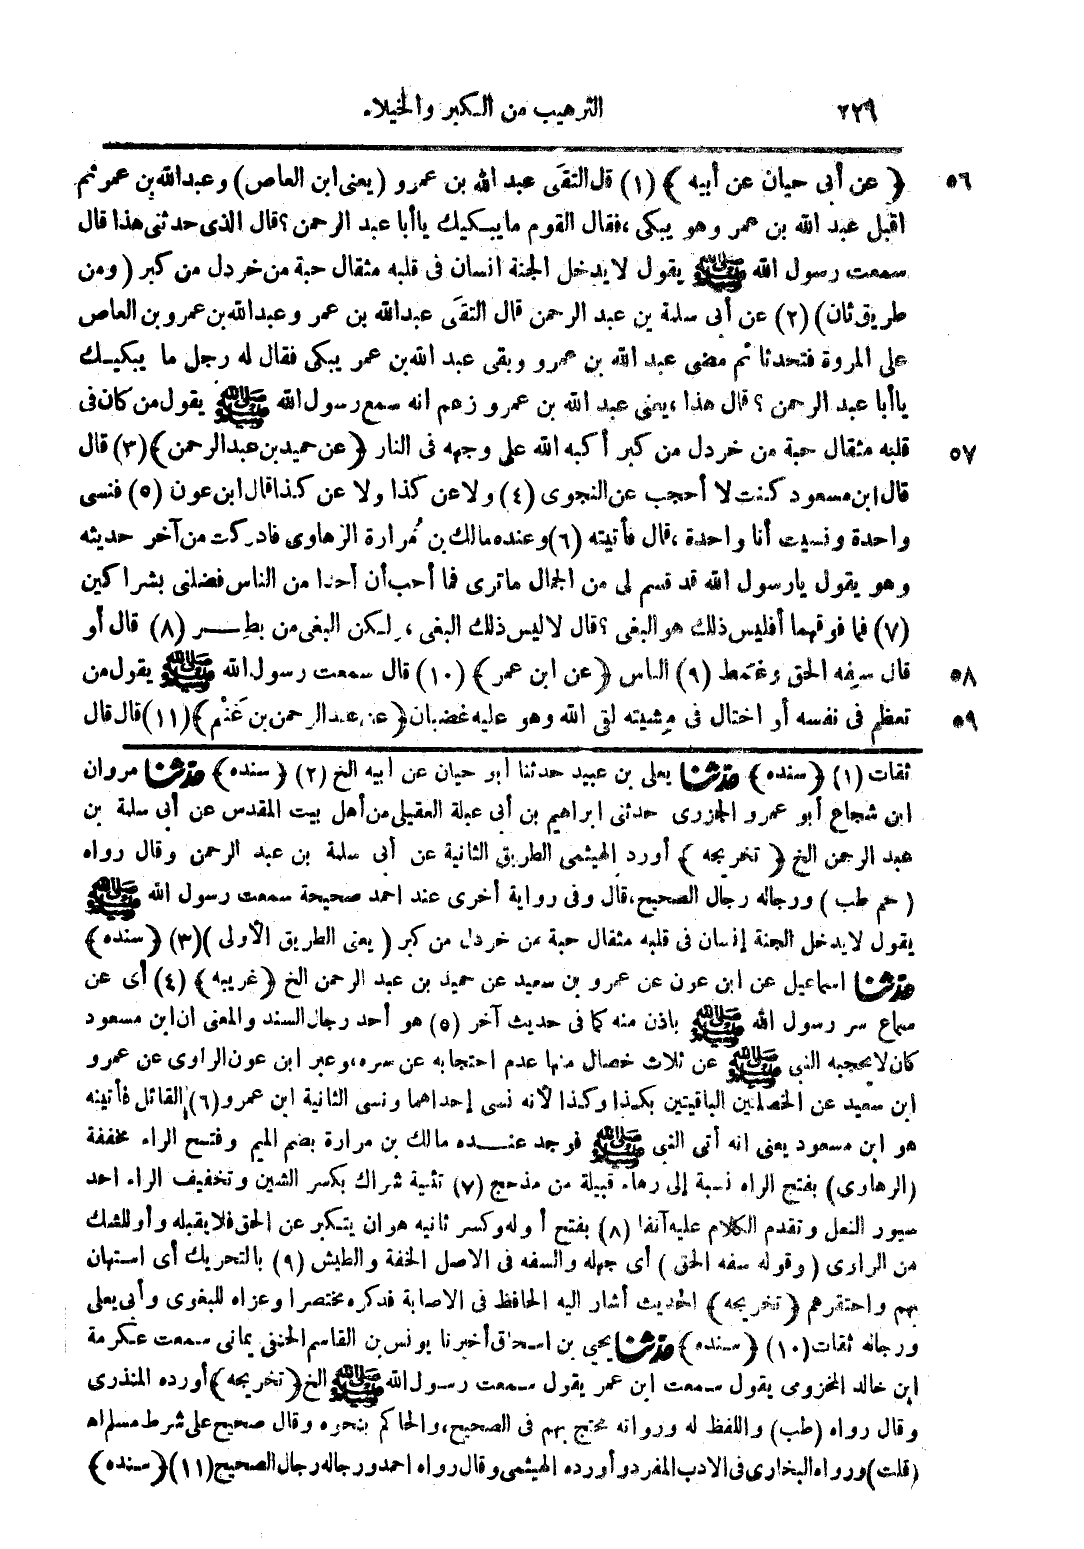 ٢٢٩ الترهيب من الكبر والخيلاء
٥٦ ﴿ عن أبى حيان عن أبيه ﴾ (١) قال التقى عبد الله بن عمرو (يعنى ابن العاص) وعبد الله بن عمر ثم
اقبل عبد الله بن عمر وهو يبكى، فقال القوم ما يبكيك يا أبا عبد الرحمن؟ قال الذى حدثنى هذا قال
سمعت رسول الله ﷺ يقول لا يدخل الجنة انسان فى قلبه مثقال حبة من خردل من كبر (ومن
طريق ثان) (٢) عن أبى سلمة بن عبد الرحمن قال التقى عبد الله بن عمر وعبد الله بن عمرو بن العاص
على المروة فتحدثا ثم مضى عبد الله بن عمرو وبقى عبد الله بن عمر يبكى فقال له رجل ما يبكيك
يا أبا عبد الرحمن؟ قال هذا، يعنى عبد الله بن عمرو زعم انه سمع رسول الله ﷺ يقول من كان فى
٥٧ قلبه مثقال حبة من خردل من كبر أكبه الله على وجهه فى النار ﴿ عن حميد بن عبد الرحمن ﴾ (٣) قال
قال ابن مسعود كنت لا أحجب عن النجوى (٤) ولا عن كذا ولا عن كذا قال ابن عون (٥) فنسى
واحدة ونسيت أنا واحدة، قال فأتيته (٦) وعنده مالك بن مُرارة الرهاوى فادركت من آخر حديثه
وهو يقول يا رسول الله قد قسم لى من الجمال ما ترى فما أحب أن أحدا من الناس فضلنى بشراكين
(٧) فما فوقهما أفليس ذلك هو البغى؟ قال لا ليس ذلك البغى، ولكن البغى من بطِـــر (٨) قال أو
٥٨ قال سفِه الحق وغمَط (٩) الناس ﴿ عن ابن عمر ﴾ (١٠) قال سمعت رسول الله ﷺ يقول من
٥٩ تعظم فى نفسه أو اختال فى مِشيته لقى الله وهو عليه غضبان ﴿ عن عبد الرحمن بن غَنْم ﴾ (١١) قال قال
ثقات (١) ﴿ سنده ﴾ حدثنا يعلى بن عبيد حدثنا أبو حيان عن أبيه الخ (٢) ﴿ سنده ﴾ حدثنا مروان
ابن شجاع أبو عمرو الجزرى حدثنى ابراهيم بن أبى عبلة العقيلى من أهل بيت المقدس عن أبى سلمة بن
عبد الرحمن الخ ﴿ تخريجه ﴾ أورد الهيثمى الطريق الثانية عن أبى سلمة بن عبد الرحمن وقال رواه
(حم طب) ورجاله رجال الصحيح، قال وفى رواية أخرى عند احمد صحيحة سمعت رسول الله ﷺ
يقول لا يدخل الجنة إنسان فى قلبه مثقال حبة من خردل من كبر (يعنى الطريق الأولى) (٣) ﴿ سنده ﴾
حدثنا اسماعيل عن ابن عون عن عمرو بن سعيد عن حميد بن عبد الرحمن الخ ﴿ غريبه ﴾ (٤) أى عن
سماع سر رسول الله ﷺ باذن منه كما فى حديث آخر (٥) هو أحد رجال السند والمعنى ان ابن مسعود
كان لا يحجبه النبى ﷺ عن ثلاث خصال منها عدم احتجابه عن سره، وعبر ابن عون الراوى عن عمرو
ابن سعيد عن الخصلتين الباقيتين بكذا وكذا لأنه نسى إحداهما ونسى الثانية ابن عمرو (٦) القائل فأتيته
هو ابن مسعود يعنى انه أتى النبى ﷺ فوجد عنـــده مالك بن مرارة بضم الميم وفتح الراء مخففة
(الرهاوى) بفتح الراء نسبة إلى رهاء قبيلة من مذحج (٧) تثنية شراك بكسر الشين وتخفيف الراء احد
سيور النعل وتقدم الكلام عليه آنفا (٨) بفتح أوله وكسر ثانيه هو ان يتكبر عن الحق فلا يقبله وأو للشك
من الراوى (وقوله سفه الحق) أى جهله والسفه فى الاصل الخفة والطيش (٩) بالتحريك أى استهان
بهم واحتقرهم ﴿ تخريجه ﴾ الحديث أشار اليه الحافظ فى الاصابة فذكره مختصرا وعزاه للبغوى وأبى يعلى
ورجاله ثقات (١٠) ﴿ سنده ﴾ حدثنا يحيى بن اسحاق أخبرنا يونس بن القاسم الحنفى يمانى سمعت عكرمة
ابن خالد المخزومى يقول سمعت ابن عمر يقول سمعت رسول الله ﷺ الخ ﴿ تخريجه ﴾ أورده المنذرى
وقال رواه (طب) واللفظ له ورواته محتج بهم فى الصحيح، والحاكم بنحوه وقال صحيح على شرط مسلم اه
(قلت) ورواه البخارى فى الادب المفرد وأورده الهيثمى وقال رواه احمد ورجاله رجال الصحيح (١١) ﴿ سنده ﴾